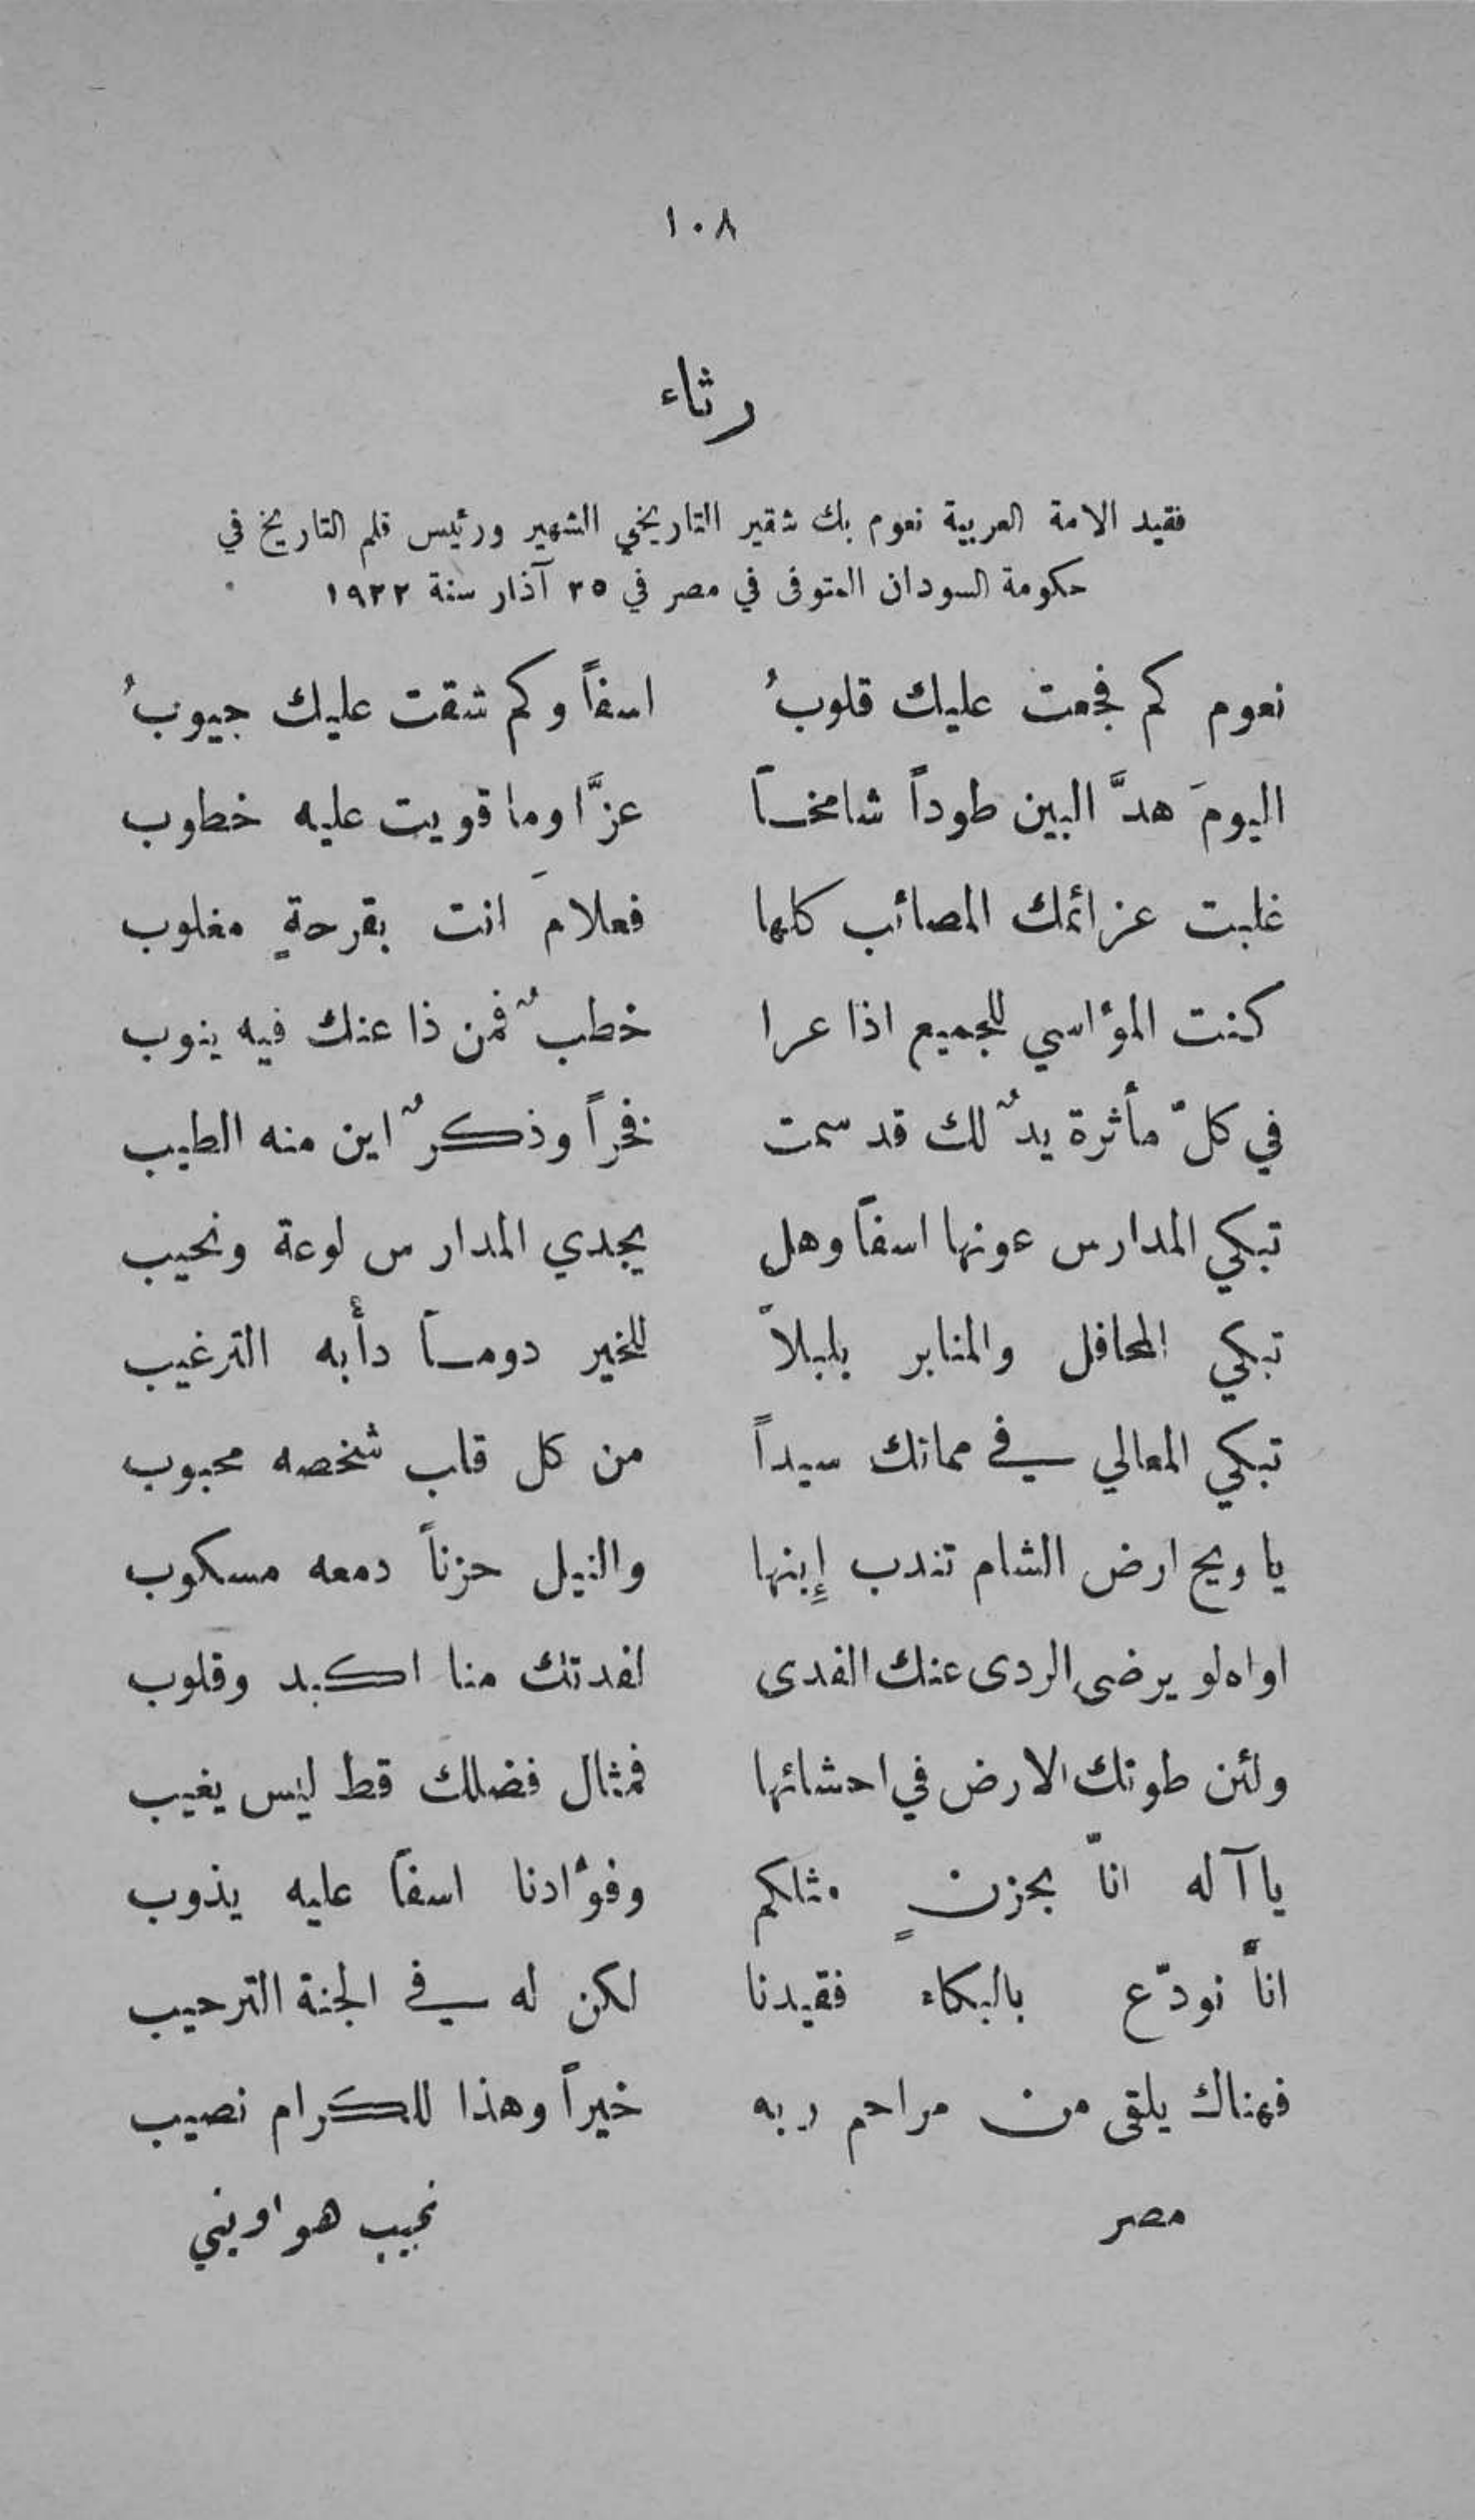 ١٠٨
رثاء
فقيد الامة العربية نعوم بك شقير التاريخي الشهير ورئيس قلم التاريخ في
حكومة السودان المتوفى في مصر في ٢٥ آذار سنة ١٩٢٢
نعوم كم فجعت عليك قلوبُ اسفاً وكم شقت عليك جيوبُ
اليومَ هدَّ البين طوداً شامخاً عزَّا وما قويت عليه خطوب
غلبت عزائمك المصائب كلها فعلامَ انت بقرحةٍ مغلوب
كنت المؤاسي للجميع اذا عرا خطبٌ فمن ذا عنك فيه ينوب
في كلّ مأثرة يدٌ لك قد سمت فخراً وذكرٌ اين منه الطيب
تبكي المدارس عونها اسفاً وهل يجدي المدارس لوعة ونحيب
تبكي المحافل والمنابر بلبلاً للخير دوماً دأبه الترغيب
تبكي المعالي في مماتك سيداً من كل قلب شخصه محبوب
يا ويح ارض الشام تندب إبنها والنيل حزناً دمعه مسكوب
اواه لو يرضى الردى عنك الفدى لفدتك منا اكبد وقلوب
ولئن طوتك الارض في احشائها فمثال فضلك قط ليس يغيب
يا آله انّا بحزنٍ مثلكم وفؤادنا اسفاً عليه يذوب
انّا نودّع بالبكاء فقيدنا لكن له في الجنة الترحيب
فهناك يلقى من مراحم ربه خيراً وهذا للكرام نصيب
مصر نجيب هواويني